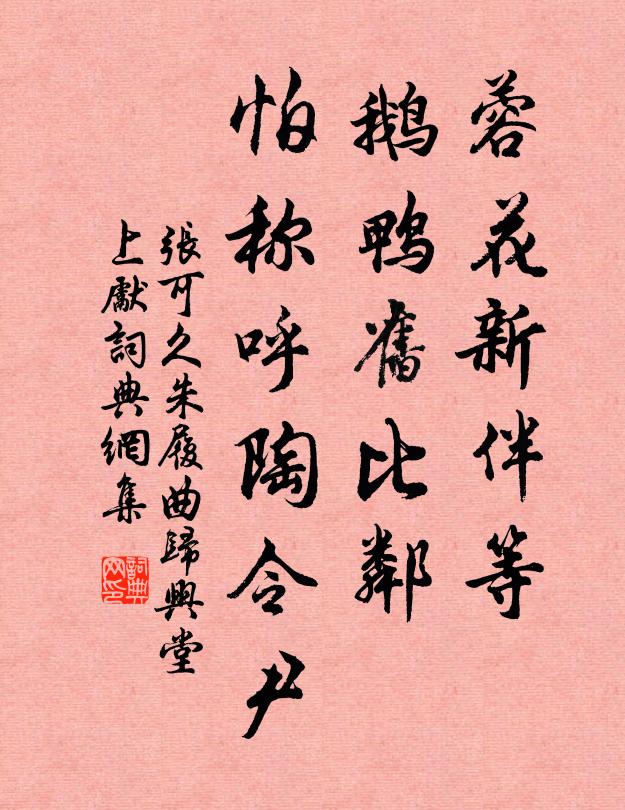 蓉花新伴等
鹅鸭舊比鄰
怕称呼陶令尹
張可久朱履曲歸興堂
上獻詞典網集
詞典网印